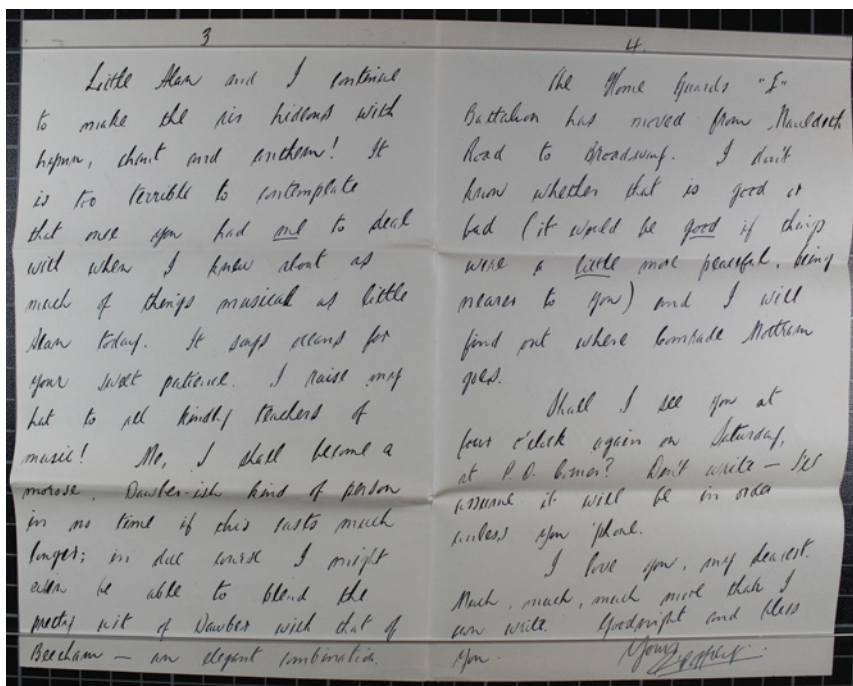 3
Little Alan and I continue
to make the air hideous with
hymn, chant and anthem! It
is too terrible to contemplate
that once you had me to deal
with when I knew about as
much of things musical as little
Alan today. It says oceans for
your sweet patience. I raise my
hat to all kindly teachers of
music! Me, I shall become a
morose, Dawber-ish kind of person
in no time if this lasts much
longer; in due course I might
even be able to blend the
pretty wit of Dawber with that of
Beecham — an elegant combination.
4.
The Home Guards "E"
Battalion has moved from Mauldeth
Road to Broadway. I don't
know whether that is good or
bad (it would be good if things
were a little more peaceful, being
nearer to you) and I will
find out where Comrade Mottram
goes.
Shall I see you at
four o'clock again on Saturday,
at P.O. Corner? Don't write — I'll
assume it will be in order
unless you 'phone.
I love you, my dearest.
Much, much, much more than I
can write. Goodnight and bless
you.
Yours